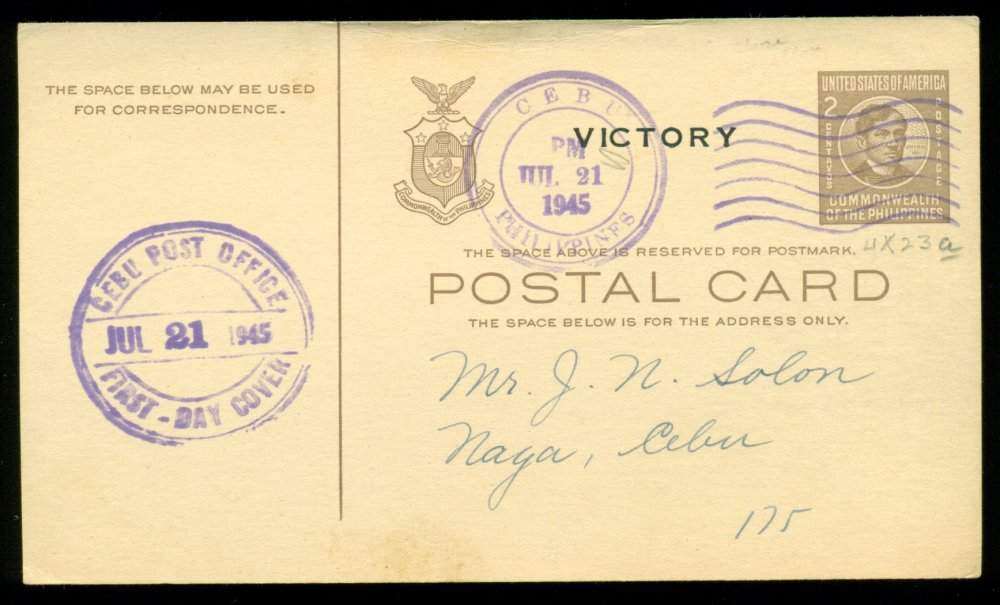 THE SPACE BELOW MAY BE USED
FOR CORRESPONDENCE.
COMMONWEALTH OF THE PHILIPPINES
CEBU
PM
JUL 21
1945
PHILIPPINES
VICTORY
UNITED STATES OF AMERICA
2 CENTAVOS
POSTAGE
COMMONWEALTH
OF THE PHILIPPINES
4X23a
THE SPACE ABOVE IS RESERVED FOR POSTMARK.
POSTAL CARD
THE SPACE BELOW IS FOR THE ADDRESS ONLY.
CEBU POST OFFICE
JUL 21 1945
FIRST-DAY COVER
Mr. J. N. Solon
Naga, Cebu
175